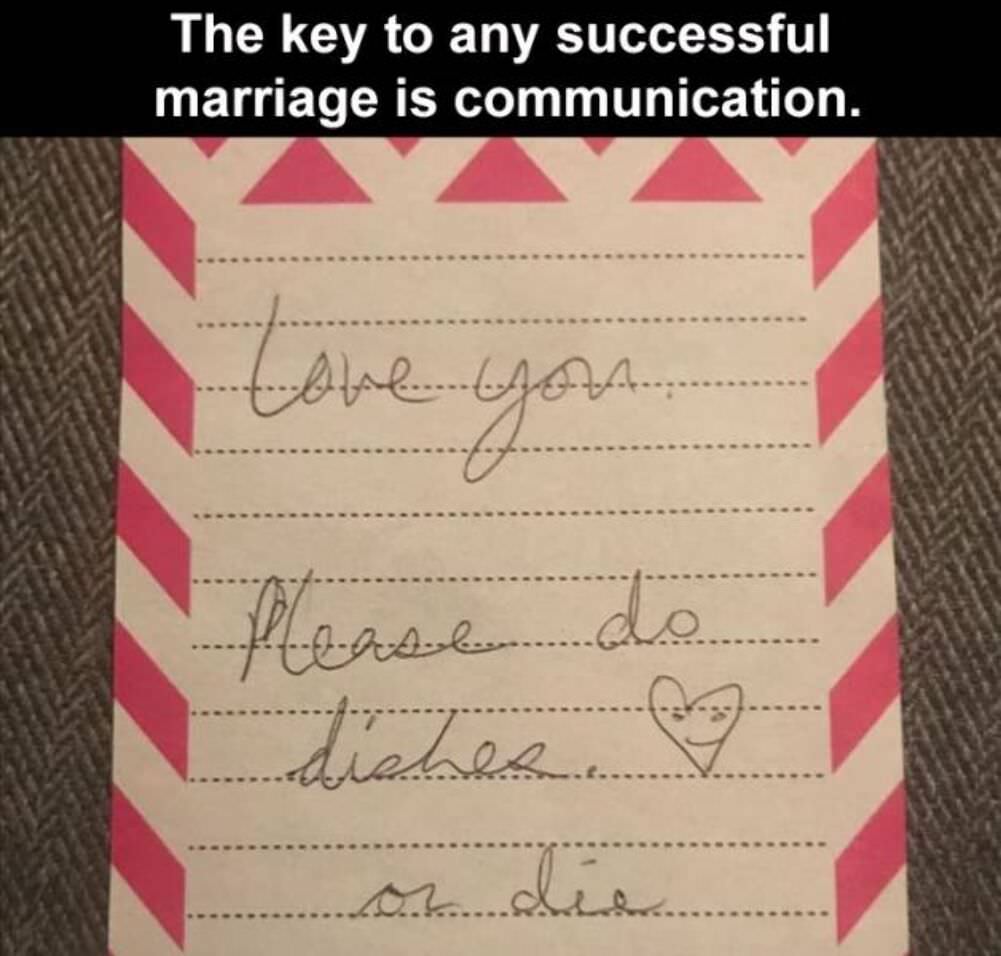 The key to any successful
marriage is communication.
Love you.
Please do
dishes.
or die